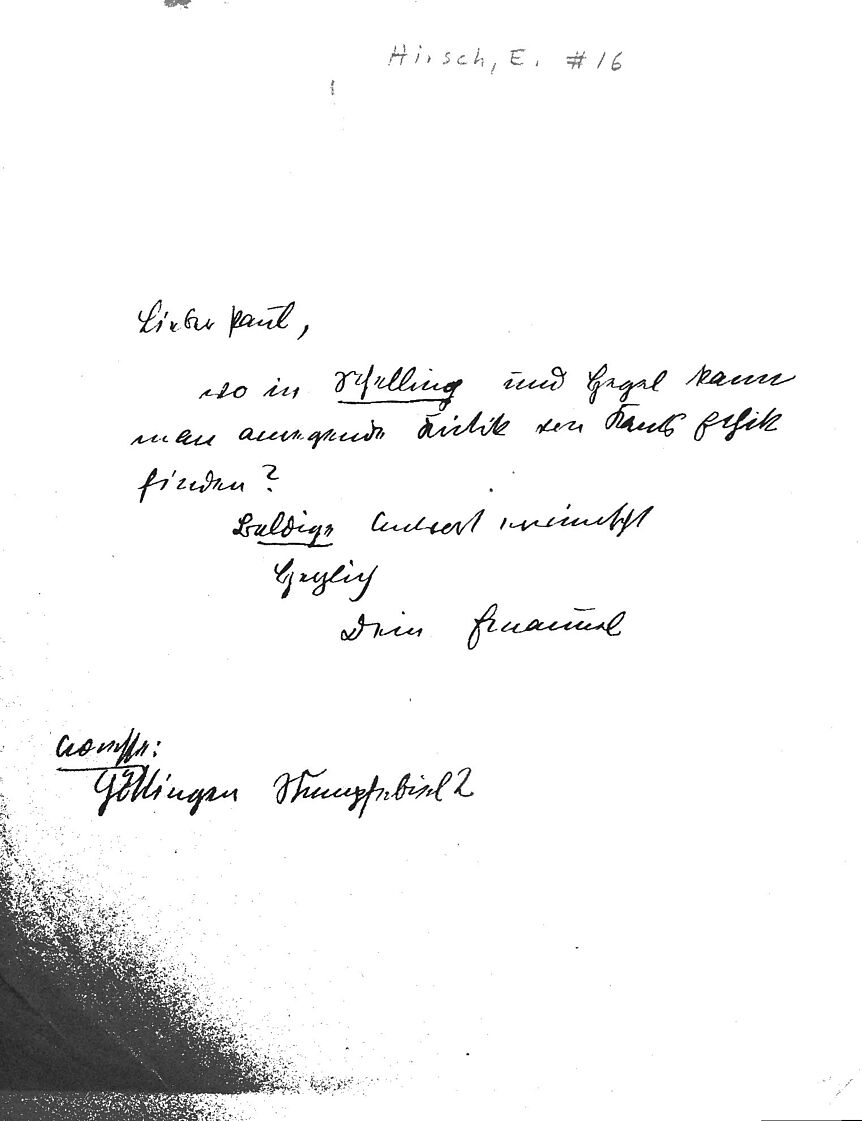 Hirsch, E. #16
Lieber Paul,
wo in Schelling und Hegel kann
man anregende Kritik von Kants Ethik
finden?
Baldige Antwort wünscht
Herzlich
Dein Emanuel
Adresse:
Göttingen Stumpfebiel 2